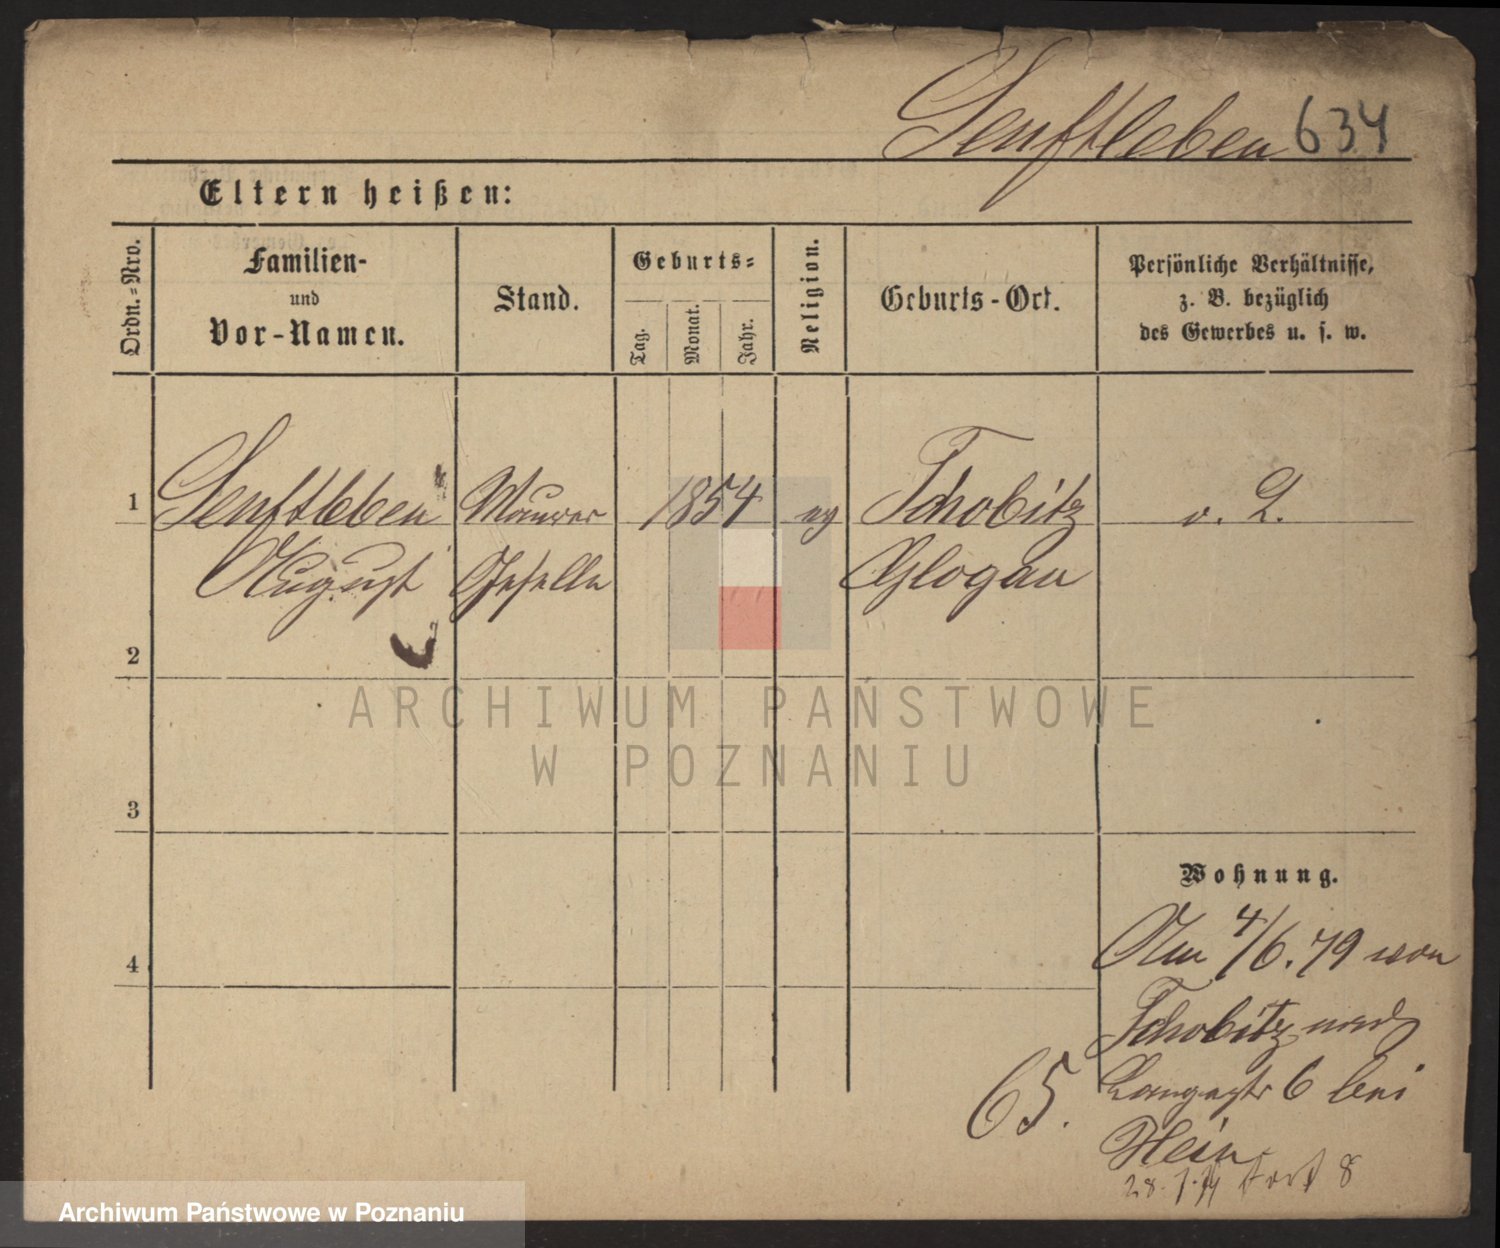 Senftleben 634
Eltern heißen:
Ordn.-Nro.
Familien-
und
Vor-Namen.
Stand.
Geburts-
Tag.
Monat.
Jahr.
Religion.
Geburts-Ort.
Persönliche Verhältnisse,
z. B. bezüglich
des Gewerbes u. s. w.
1 Senftleben Maurer 1854 ev Tschobitz v. L.
August Geselle Glogau
2
3
4
Wohnung.
Am 4/6.79 von
Tschobitz nach
Langestr 6 bei
Hein
65.
28.7.79 Fort 8
ARCHIWUM PAŃSTWOWE
W POZNANIU
Archiwum Państwowe w Poznaniu